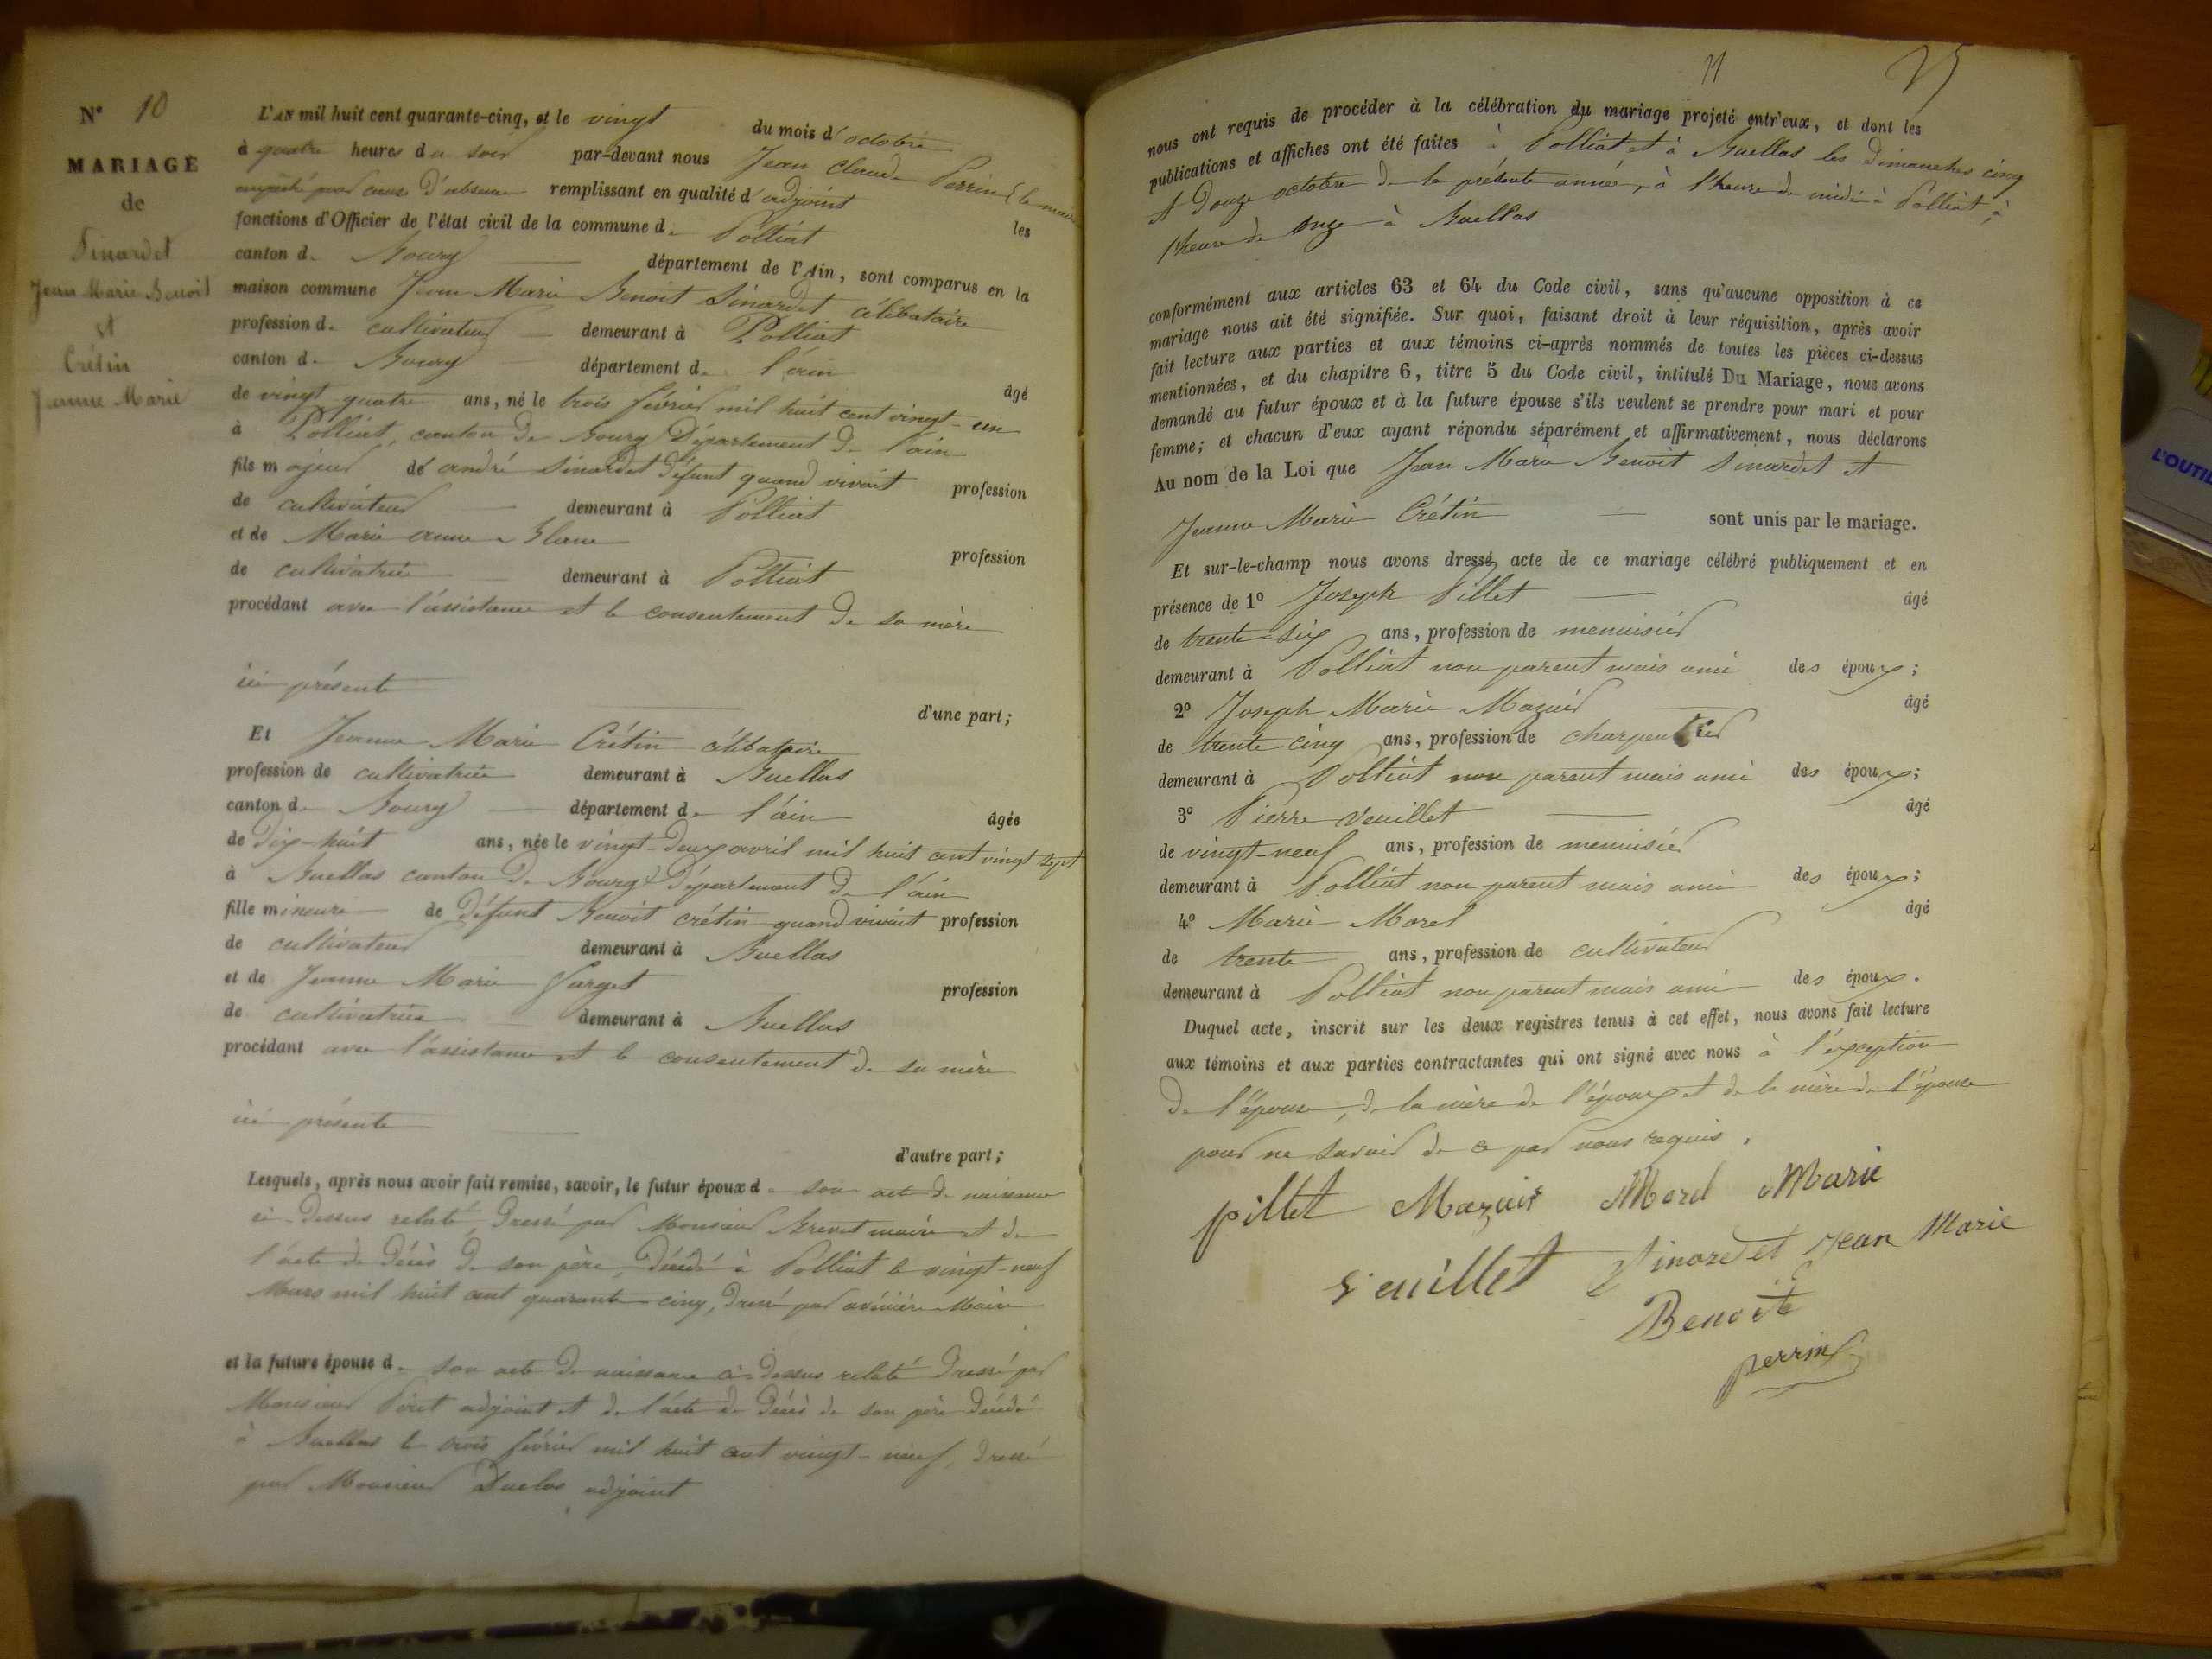 N° 10
MARIAGE
de
Sinardet
Jean Marie Benoit
et
Crétin
Jeanne Marie
L'AN mil huit cent quarante-cinq, et le vingt du mois d'octobre
à quatre heures du soir par-devant nous Jean Claude Perrin (le maire
empêché pour cause d'absence remplissant en qualité d'adjoint les
fonctions d'Officier de l'état civil de la commune de Polliat
canton de Bourg département de l'Ain, sont comparus en la
maison commune Jean Marie Benoit Sinardet célibataire
profession de cultivateur demeurant à Polliat
canton de Bourg département de l'ain âgé
de vingt quatre ans, né le trois février mil huit cent vingt-un
à Polliat, canton de Bourg Département de l'ain
fils majeur de andré Sinardet défunt quand vivait profession
de cultivateur demeurant à Polliat
et de Marie anne Blanc profession
de cultivatrice demeurant à Polliat
procédant avec l'assistance et le consentement de sa mère
ici présente d'une part;
Et Jeanne Marie Crétin célibataire
profession de cultivatrice demeurant à Buellas
canton de Bourg département de l'ain âgée
de dix-huit ans, née le vingt-deux avril mil huit cent vingt sept
à Buellas canton de Bourg Département de l'ain
fille mineure de défunt Benoit crétin quand vivait profession
de cultivateur demeurant à Buellas
et de Jeanne Marie Sarget profession
de cultivatrice demeurant à Buellas
procédant avec l'assistance et le consentement de sa mère
ici présente d'autre part;
Lesquels, après nous avoir fait remise, savoir, le futur époux de son acte de naissance
ci-dessus relaté, dressé par Monsieur Brevet maire et de
l'acte de décès de son père, décédé à Polliat le vingt-neuf
Mars mil huit cent quarante-cinq, dressé par Maire
et la future épouse de son acte de naissance ci-dessus relaté dressé par
Monsieur Péret adjoint et de l'acte de décès de son père décédé
à Buellas le trois février mil huit cent vingt-neuf, dressé
par Monsieur Duclos adjoint
11
nous ont requis de procéder à la célébration du mariage projeté entr'eux, et dont les
publications et affiches ont été faites à Polliat et à Buellas les Dimanches cinq
et Douze octobre de la présente année, à l'heure de midi à Polliat, à
l'heure de onze à Buellas
conformément aux articles 63 et 64 du Code civil, sans qu'aucune opposition à ce
mariage nous ait été signifiée. Sur quoi, faisant droit à leur réquisition, après avoir
fait lecture aux parties et aux témoins ci-après nommés de toutes les pièces ci-dessus
mentionnées, et du chapitre 6, titre 5 du Code civil, intitulé Du Mariage, nous avons
demandé au futur époux et à la future épouse s'ils veulent se prendre pour mari et pour
femme; et chacun d'eux ayant répondu séparément et affirmativement, nous déclarons
Au nom de la Loi que Jean Marie Benoit Sinardet et
Jeanne Marie Crétin sont unis par le mariage.
Et sur-le-champ nous avons dressé acte de ce mariage célébré publiquement et en
présence de 1° Joseph Pillet âgé
de trente-six ans, profession de menuisier
demeurant à Polliat non parent mais ami des époux;
2° Joseph Marie Mazuir âgé
de trente cinq ans, profession de charpentier
demeurant à Polliat non parent mais ami des époux;
3° Pierre Veuillet âgé
de vingt-neuf ans, profession de menuisier
demeurant à Polliat non parent mais ami des époux;
4° Marie Morel âgé
de trente ans, profession de cultivateur
demeurant à Polliat non parent mais ami des époux.
Duquel acte, inscrit sur les deux registres tenus à cet effet, nous avons fait lecture
aux témoins et aux parties contractantes qui ont signé avec nous à l'exception
de l'épouse, de la mère de l'époux et de la mère de l'épouse
pour ne savoir de ce par nous requis.
pillet Mazuir Morel Marie
Veuillet Sinardet Jean Marie
Benoit
perrin
L'OUTIL